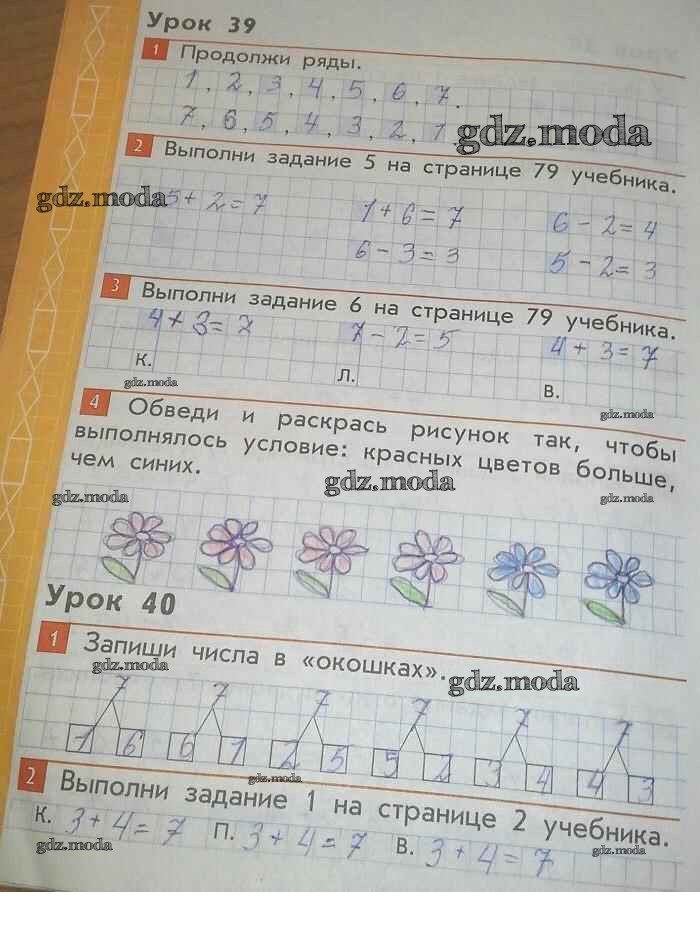 Урок 39
1 Продолжи ряды.
1, 2, 3, 4, 5, 6, 7.
7, 6, 5, 4, 3, 2, 1
gdz.moda
2 Выполни задание 5 на странице 79 учебника.
gdz.moda
5+2=7 1+6=7 6-2=4
6-3=3 5-2=3
3 Выполни задание 6 на странице 79 учебника.
4+3=7 7-2=5 4+3=7
К. Л. В.
gdz.moda gdz.moda
4 Обведи и раскрась рисунок так, чтобы
выполнялось условие: красных цветов больше,
чем синих.
gdz.moda gdz.moda gdz.moda
Урок 40
1 Запиши числа в «окошках».
gdz.moda gdz.moda
7 7 7 7 7 7
1 6 6 1 2 5 5 2 3 4 4 3
gdz.moda
2 Выполни задание 1 на странице 2 учебника.
К. 3+4=7 П. 3+4=7 В. 3+4=7
gdz.moda gdz.moda